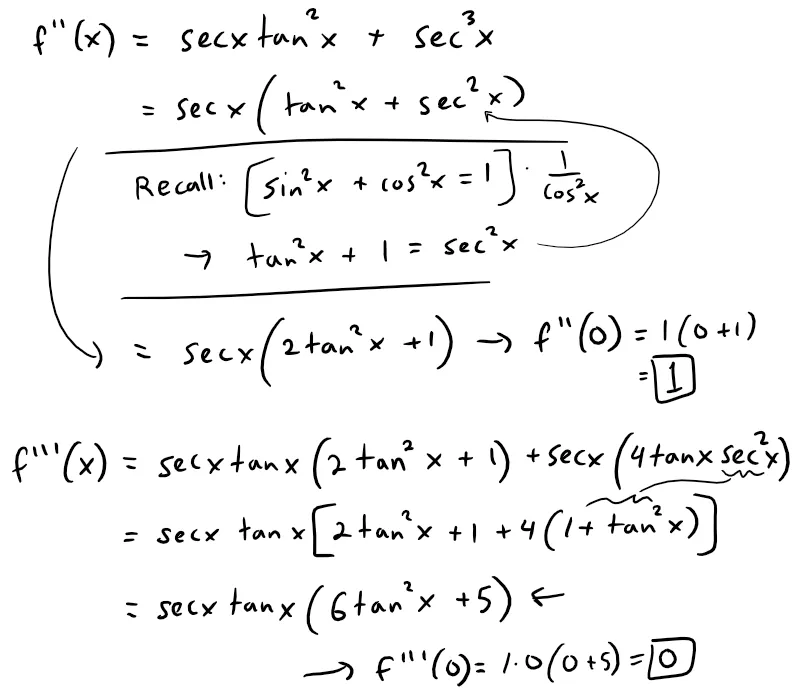 f''(x) = secx tan²x + sec³x
= sec x (tan²x + sec²x)
Recall: [sin²x + cos²x = 1] · 1/cos²x
→ tan²x + 1 = sec²x
= secx(2tan²x +1) → f''(0) = 1(0+1)
= 1
f'''(x) = secx tanx (2tan²x + 1) + secx (4tanx sec²x)
= secx tanx [2tan²x + 1 + 4(1+ tan²x)]
= secx tanx (6tan²x + 5) ←
→ f'''(0) = 1·0(0+5) = 0